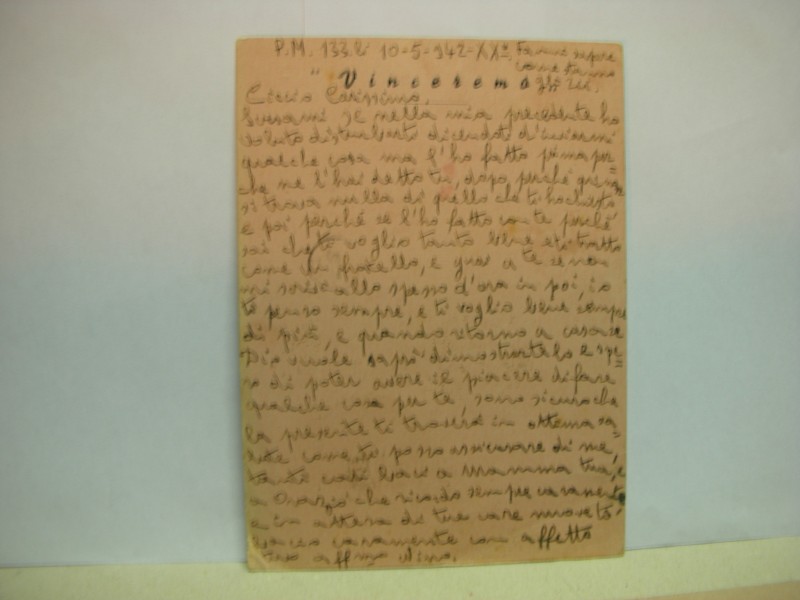 P.M. 133.2 10-5-942-XXº. Fammi sapere
come stanno
" Vinceremo gli zii.
Ciccio Carissimo,
Scusami se nella mia precedente ho
voluto disturbarti dicendoti d'inviarmi
qualche cosa ma l'ho fatto prima per=
che me l'hai detto tu, dopo perché qui non
si trova nulla di quello che ti ho chiesto
e poi perché se l'ho fatto con te perché
sai che ti voglio tanto bene e ti tratto
come un fratello, e guai a te se non
mi scrivi allo spesso d'ora in poi, io
te penso sempre, e ti voglio bene sempre
di più, e quando ritorno a casa se
Dio vuole saprò dimostrartelo e spe=
ro di poter avere il piacere di fare
qualche cosa per te, sono sicuro che
la presente ti troverà in ottima sa=
lute come, ti posso assicurare di me,
tanti cari baci a Mamma tua, e
a Orazio che ricordo sempre caramente
e in attesa di tue care nuove ti
bacio caramente con affetto
tuo aff/mo Nino.